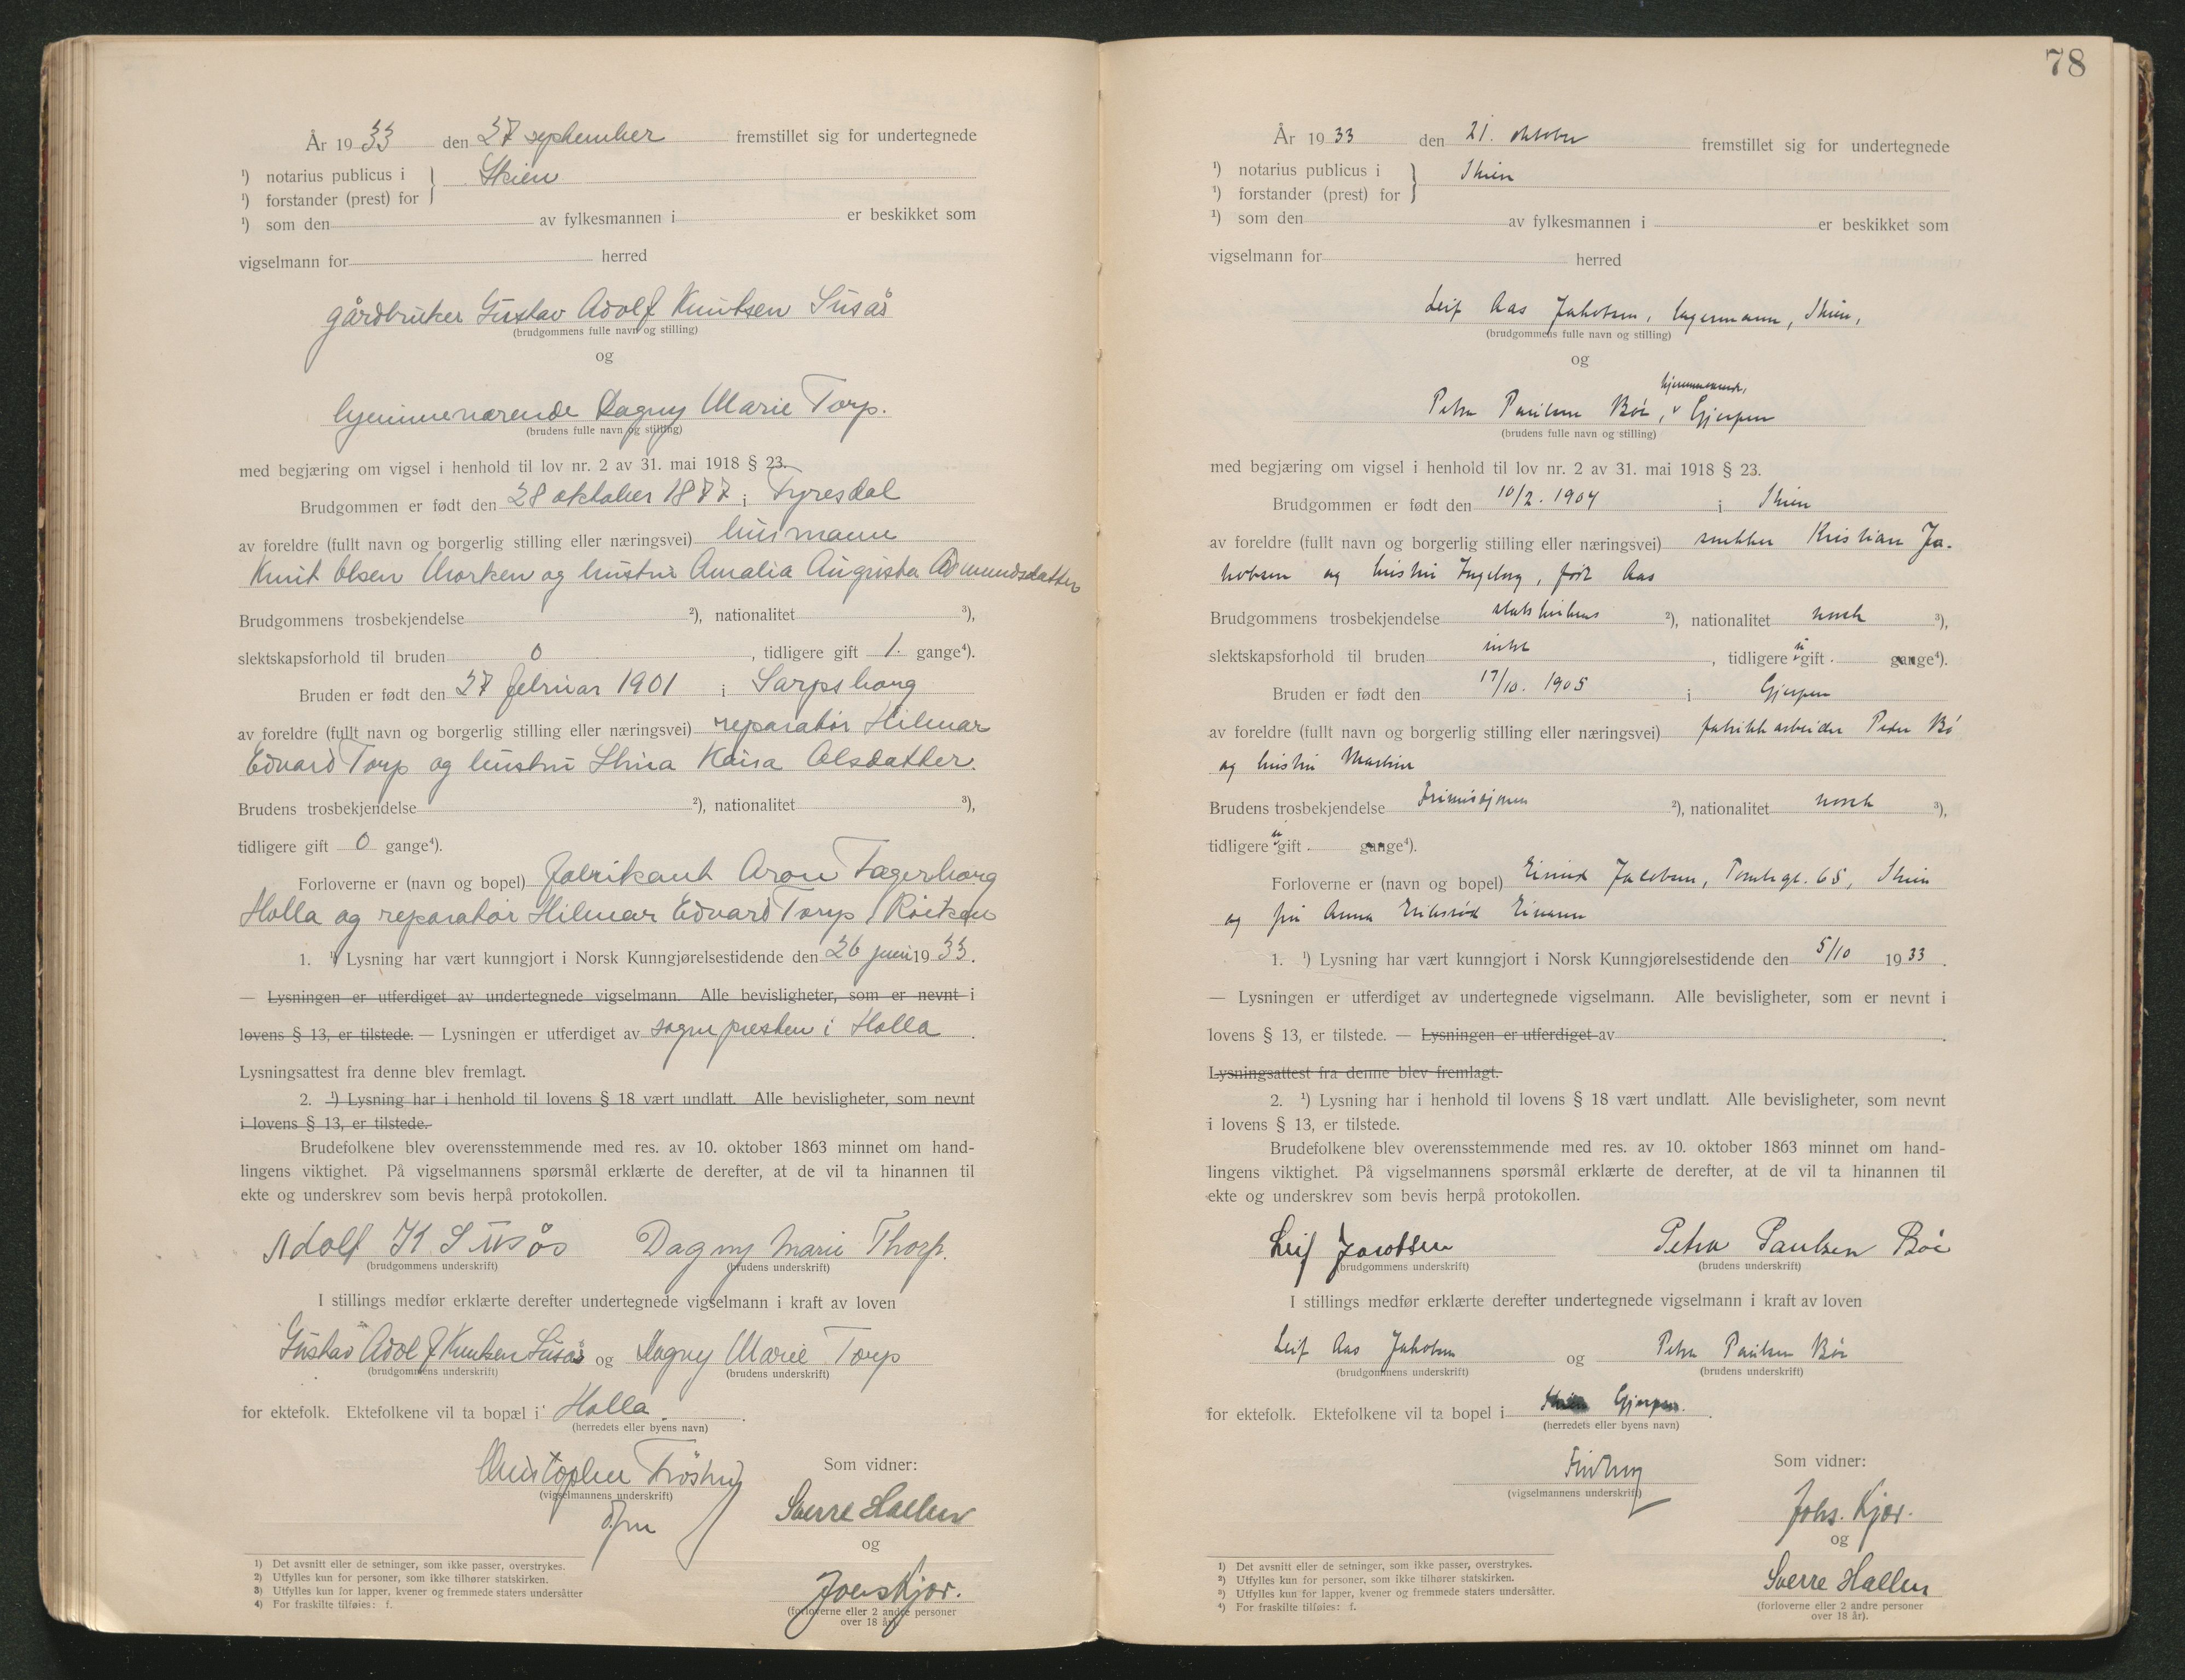 År 1933 den 27 september fremstillet sig for undertegnede
¹) notarius publicus i } Skien
¹) forstander (prest) for
¹) som den av fylkesmannen i er beskikket som
vigselmann for herred
gårdbruker Gustav Adolf Knutsen Suså̊s
(brudgommens fulle navn og stilling)
og
hjemmeværende Dagny Marie Torp.
(brudens fulle navn og stilling)
med begjæring om vigsel i henhold til lov nr. 2 av 31. mai 1918 § 23.
Brudgommen er født den 28 oktober 1877 i Fyresdal
av foreldre (fullt navn og borgerlig stilling eller næringsvei) husmann
Knut Olsen og hustru Amalia Augusta
Brudgommens trosbekjendelse ²), nationalitet ³),
slektskapsforhold til bruden 0, tidligere gift 1. gange⁴).
Bruden er født den 27 februar 1901 i Sarpsborg
av foreldre (fullt navn og borgerlig stilling eller næringsvei) reparatør Hilmar
Edvard Torp og hustru Stina Kaisa Olsdatter.
Brudens trosbekjendelse ²), nationalitet ³),
tidligere gift 0 gange⁴).
Forloverne er (navn og bopel) fabrikant Aron Fagerborg
Holla og reparatør Hilmar Edvard Torp,
1. ¹) Lysning har vært kunngjort i Norsk Kunngjørelsestidende den 26 juni 1933.
— Lysningen er utferdiget av undertegnede vigselmann. Alle bevisligheter, som er nevnt i
lovens § 13, er tilstede. — Lysningen er utferdiget av sognepresten i Holla.
Lysningsattest fra denne blev fremlagt.
2. ¹) Lysning har i henhold til lovens § 18 vært undlatt. Alle bevisligheter, som nevnt
i lovens § 13, er tilstede.
Brudefolkene blev overensstemmende med res. av 10. oktober 1863 minnet om hand-
lingens viktighet. På vigselmannens spørsmål erklærte de derefter, at de vil ta hinannen til
ekte og underskrev som bevis herpå protokollen.
Adolf K Susås Dagny Marie Thorp.
(brudgommens underskrift) (brudens underskrift)
I stillings medfør erklærte derefter undertegnede vigselmann i kraft av loven
Gustav Adolf Knutsen Susås og Dagny Marie Torp
(brudgommens underskrift) (brudens underskrift)
for ektefolk. Ektefolkene vil ta bopæl i Holla.
(herredets eller byens navn)
Som vidner:
(vigselmannens underskrift)
Sverre Hallen
og
Johs Kjær.
(forloverne eller 2 andre personer
over 18 år).
1) Det avsnitt eller de setninger, som ikke passer, overstrykes.
2) Utfylles kun for personer, som ikke tilhører statskirken.
3) Utfylles kun for lapper, kvener og fremmede staters undersåtter
4) For fraskilte tilføies: f.
78
År 1933 den 21. oktober fremstillet sig for undertegnede
¹) notarius publicus i } Skien
¹) forstander (prest) for
¹) som den av fylkesmannen i er beskikket som
vigselmann for herred
Leif Aas Jakobsen, lagermann, Skien,
(brudgommens fulle navn og stilling)
og
hjemmeværende,
Petra Paulsen Bøe, v Gjerpen
(brudens fulle navn og stilling)
med begjæring om vigsel i henhold til lov nr. 2 av 31. mai 1918 § 23.
Brudgommen er født den 10/2. 1904 i Skien
av foreldre (fullt navn og borgerlig stilling eller næringsvei) snekker Kristian Ja-
kobsen og hustru Ingeborg, født Aas
Brudgommens trosbekjendelse statskirkens ²), nationalitet norsk ³),
slektskapsforhold til bruden intet, tidligere ugift gange⁴).
Bruden er født den 17/10. 1905 i Gjerpen
av foreldre (fullt navn og borgerlig stilling eller næringsvei) fabrikkarbeider Peder Bø
og hustru Martine
Brudens trosbekjendelse Frimisjonen ²), nationalitet norsk ³),
tidligere ugift gange⁴).
Forloverne er (navn og bopel) Eivind Jacobsen, 65, Skien
og fru Anna
1. ¹) Lysning har vært kunngjort i Norsk Kunngjørelsestidende den 5/10 1933.
— Lysningen er utferdiget av undertegnede vigselmann. Alle bevisligheter, som er nevnt i
lovens § 13, er tilstede. — Lysningen er utferdiget av
Lysningsattest fra denne blev fremlagt.
2. ¹) Lysning har i henhold til lovens § 18 vært undlatt. Alle bevisligheter, som nevnt
i lovens § 13, er tilstede.
Brudefolkene blev overensstemmende med res. av 10. oktober 1863 minnet om hand-
lingens viktighet. På vigselmannens spørsmål erklærte de derefter, at de vil ta hinannen til
ekte og underskrev som bevis herpå protokollen.
Leif Jacobsen Petra Paulsen Bøe
(brudgommens underskrift) (brudens underskrift)
I stillings medfør erklærte derefter undertegnede vigselmann i kraft av loven
Leif Aas Jakobsen og Petra Paulsen Bøe
(brudgommens underskrift) (brudens underskrift)
for ektefolk. Ektefolkene vil ta bopel i Skien Gjerpen.
(herredets eller byens navn)
Som vidner:
(vigselmannens underskrift)
Johs. Kjær.
og
Sverre Hallen
(forloverne eller 2 andre personer
over 18 år).
1) Det avsnitt eller de setninger, som ikke passer, overstrykes.
2) Utfylles kun for personer, som ikke tilhører statskirken.
3) Utfylles kun for lapper, kvener og fremmede staters undersåtter.
4) For fraskilte tilføies: f.